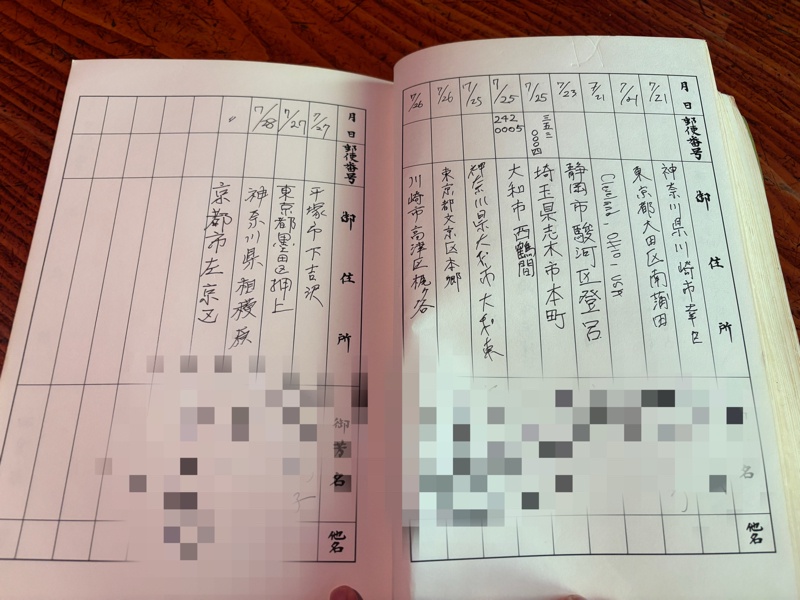 月日
郵便番号
御住所
名
他名
7/21
神奈川県川崎市幸区
7/21
東京都大田区南蒲田
7/21
Cleveland, OHIO, USA
7/23
静岡市駿河区登呂
7/25
三五三
〇〇〇四
埼玉県志木市本町
7/25
242
0005
大和市西鶴間
7/25
神奈川県大和市大和東
7/26
東京都文京区本郷
7/26
川崎市高津区梶ヶ谷
月日
郵便番号
御住所
御芳名
他名
7/27
平塚市下吉沢
7/27
東京都墨田区押上
7/28
神奈川県相模原
〃
京都市左京区